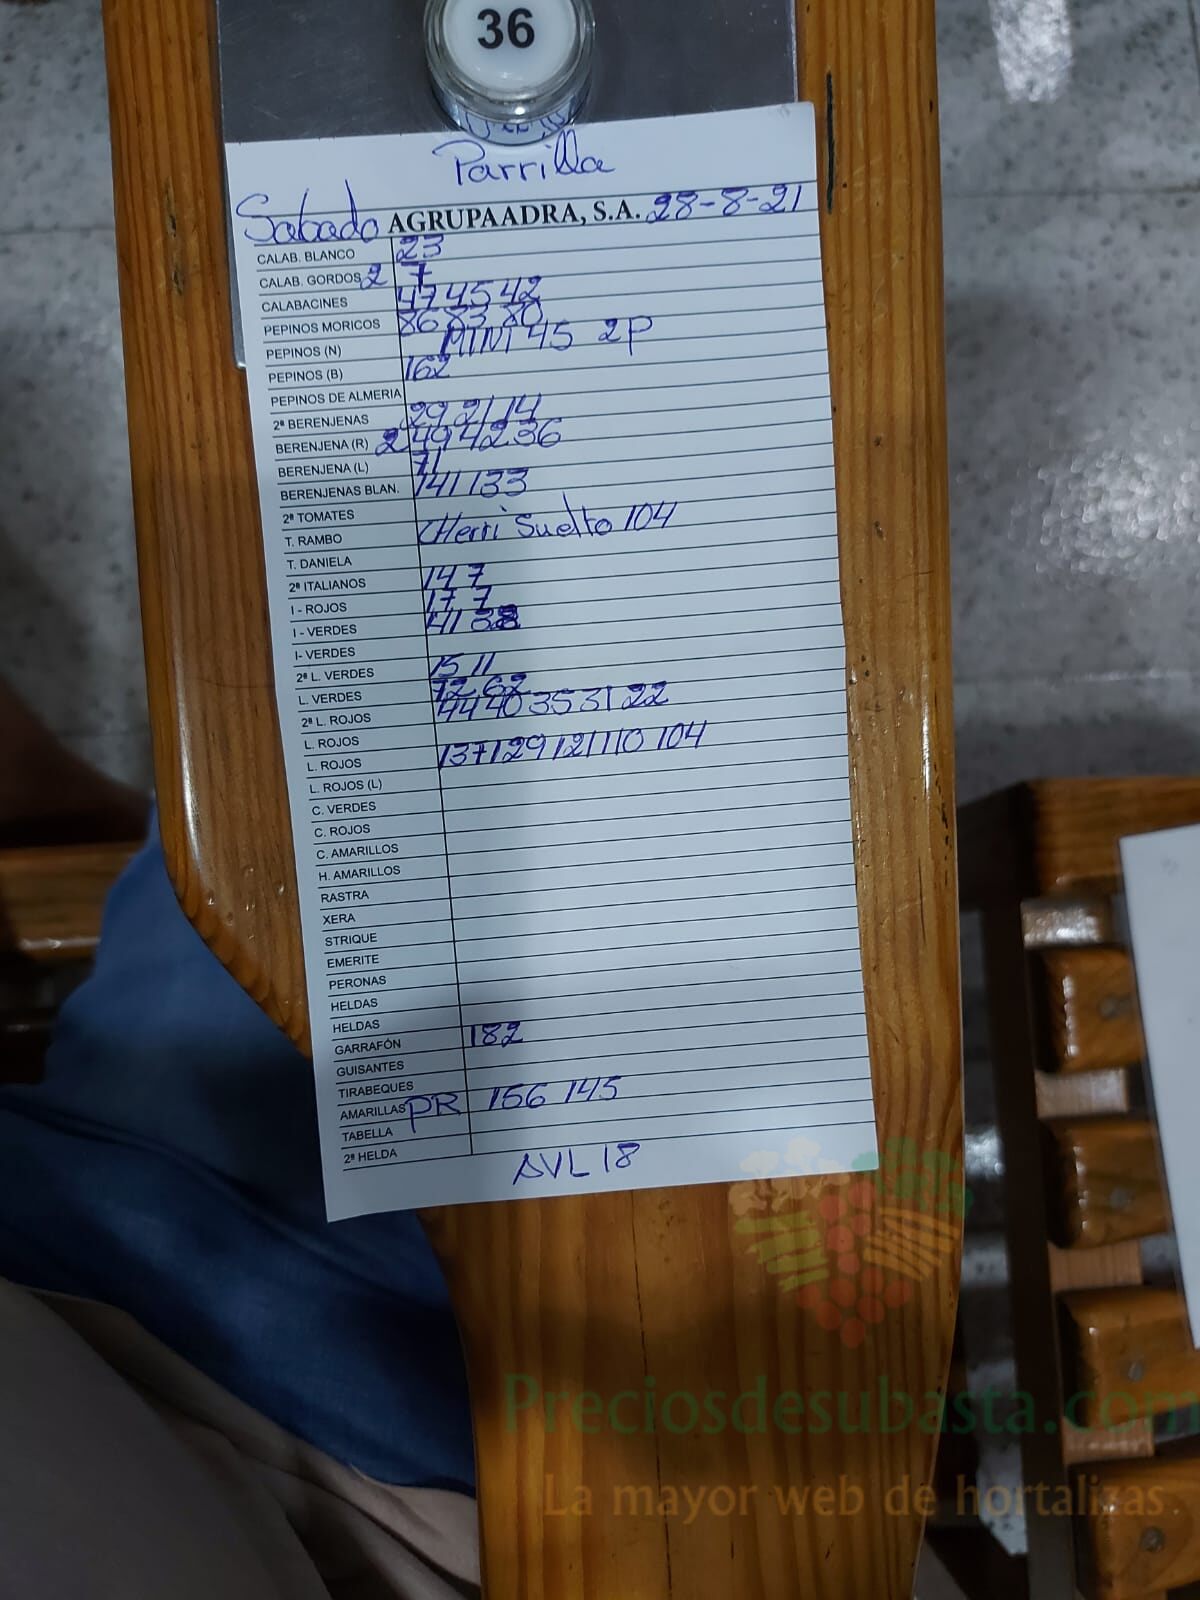 36
Parrilla
Sabado AGRUPAADRA, S.A. 28-8-21
CALAB. BLANCO 23
CALAB. GORDOS 2 7
CALABACINES 47 45 42
PEPINOS MORICOS 86 83 80
PEPINOS (N) MINI 45 2P
PEPINOS (B) 162
PEPINOS DE ALMERIA
2ª BERENJENAS 29 21 14
BERENJENA (R) 2 49 42 36
BERENJENA (L) 71
BERENJENAS BLAN. 141 133
2ª TOMATES
T. RAMBO CHerri Suelto 104
T. DANIELA
2ª ITALIANOS 14 7
I - ROJOS 17 7
I - VERDES 41 38
I- VERDES
2ª L. VERDES 15 11
L. VERDES 72 62
2ª L. ROJOS 44 40 35 31 22
L. ROJOS
L. ROJOS 137 129 121 110 104
L. ROJOS (L)
C. VERDES
C. ROJOS
C. AMARILLOS
H. AMARILLOS
RASTRA
XERA
STRIQUE
EMERITE
PERONAS
HELDAS
HELDAS
GARRAFÓN 182
GUISANTES
TIRABEQUES
AMARILLAS PR 156 145
TABELLA
2ª HELDA
AVL 18
Preciosdesubasta.com
La mayor web de hortalizas.